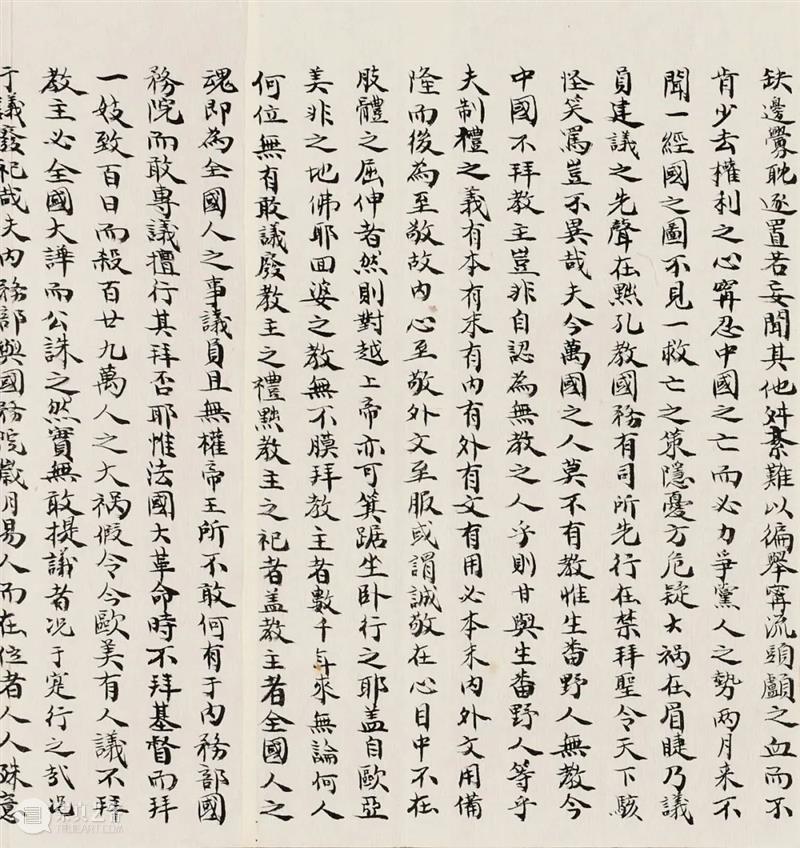 缺邊釁耽逐置若妄聞其他舛紊難以徧舉寧流頭顱之血而不
肯少去權利之心寧忍中國之亡而必力爭黨人之勢兩月来不
聞一經國之圖不見一救亡之策隱憂方危疑大禍在眉睫乃議
員建議之先聲在黜孔教國務有司所先行在禁拜聖令天下駭
怪笑罵豈不異哉夫今萬國之人莫不有教惟生番野人無教今
中國不拜教主豈非自認為無教之人乎則甘與生番野人等乎
夫制禮之義有本有末有內有外有文有用必本末內外文用備
隆而後為至敬故內心至敬外文至服或謂誠敬在心目中不在
肢體之屈伸者然則對越上帝亦可箕踞坐卧行之耶盖自歐亞
美非之地佛耶回婆之教無不膜拜教主者數千年來無論何人
何位無有敢議廢教主之禮黜教主之祀者盖教主者全國人之
魂即為全國人之事議員且無權帝王所不敢何有于內務部國
務院而敢專議擅行其拜否耶惟法國大革命時不拜基督而拜
一妓致百日而殺百廿九萬人之大禍假令今歐美有人議不拜
教主必全國大譁而公誅之然實無敢提議者况于寔行之哉况
于議廢祀哉夫內務部與國務院歲月易人而在位者人人殊意